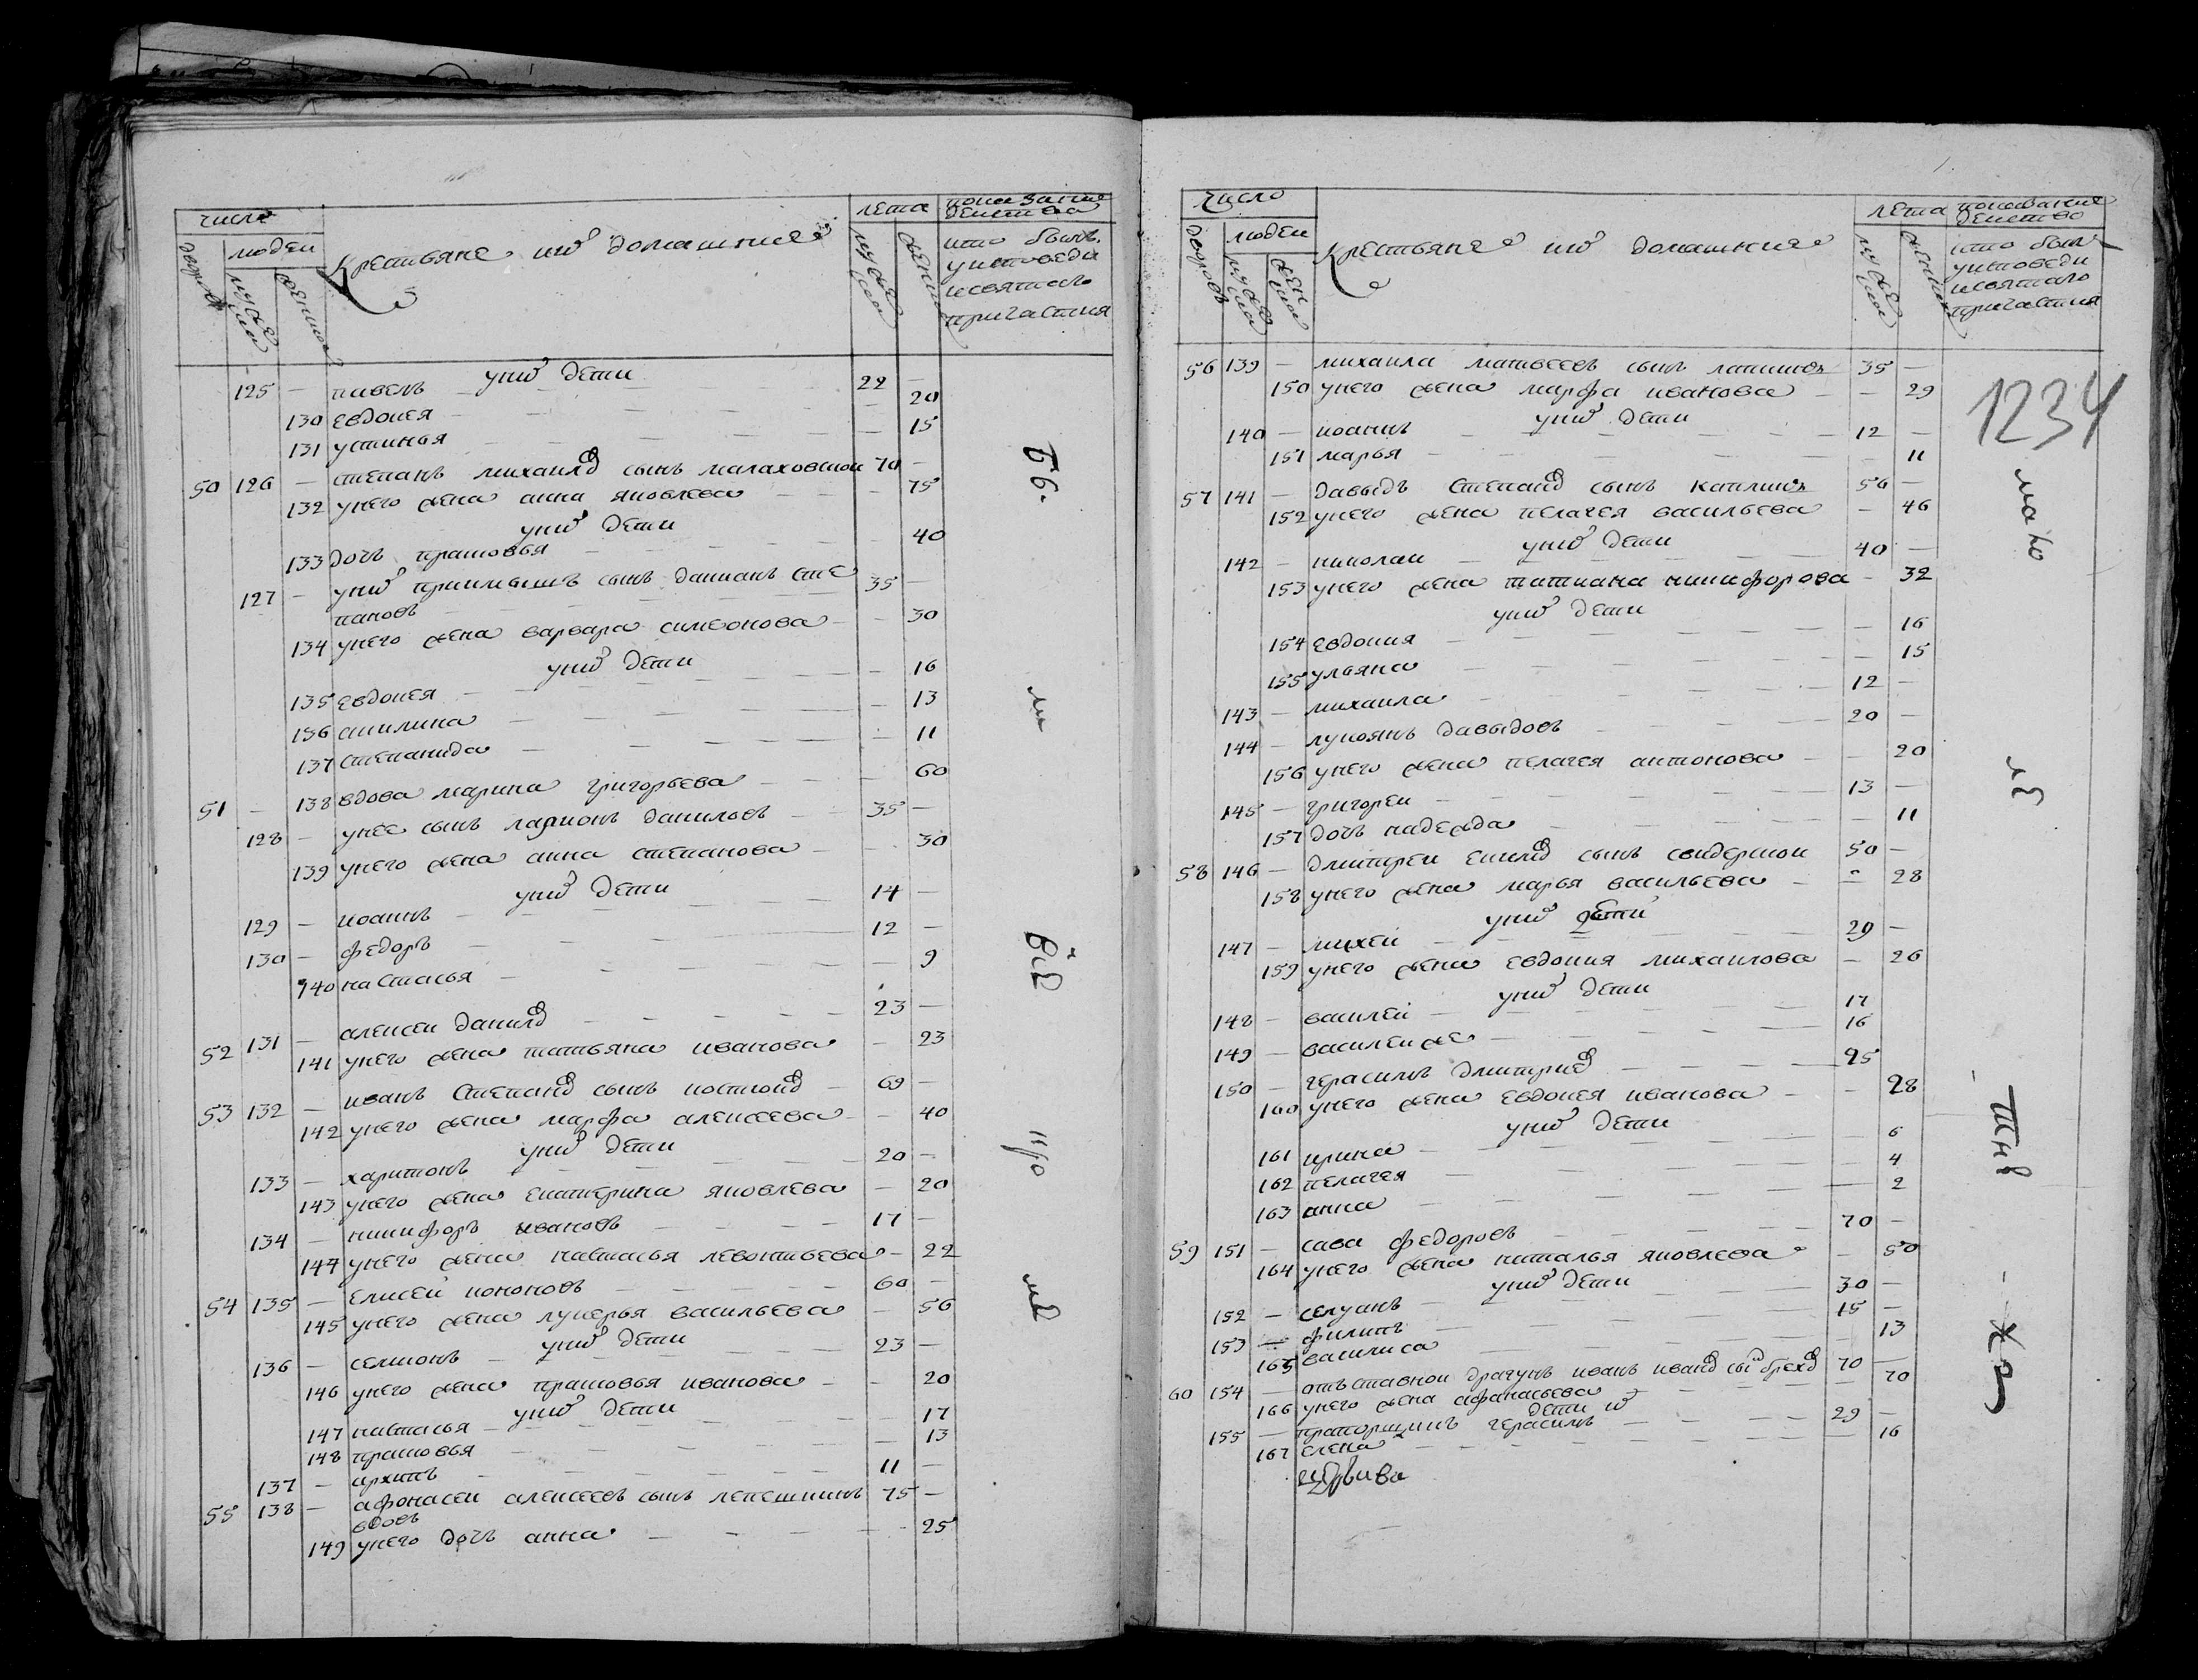 число
дворовъ
людеи
мужеска
женска
Крестьяне ихъ домашние
лета
мужеска
женска
показание
действа
кто былъ
уисповеди
исвятаго
причастия
унихъ дети
125 — павелъ — 22 —
130 евдокея — 20
131 устинья — 15
50 126 — степанъ михаилов сынъ малаховскои 70 —
132 унего жена анна яковлева — 75
унихъ дети
133 дочь прасковья — 40
127 — унихъ приимышъ сынъ данианъ сте 35 —
пановъ
134 унего жена варвара симеонова — 30
унихъ дети
135 евдокея — 16
136 акилина — 13
137 степанида — 11
51 — 138 вдова марина григорьева — 60
128 — унее сынъ ларионъ даниловъ — 35 —
139 унего жена анна степанова — 30
унихъ дети
129 — иоаннъ — 14 —
130 — федоръ — 12 —
140 настасья — 9
52 131 — алексеи данилов — 23 —
141 унего жена татьяна иванова — 23
53 132 — иванъ степанов сынъ костюков — 69 —
142 унего жена марфа алексеева — 40
унихъ дети
133 — харитонъ — 20 —
143 унего жена екатерина яковлева — 20
134 — никифоръ ивановъ — 17 —
144 унего жена настасья левонтьева — 22
54 135 — елисеи кононовъ — 60 —
145 унего жена лукерья васильева — 56
унихъ дети
136 — семионъ — 23 —
146 унего жена прасковья иванова — 20
унихъ дети
147 настасья — 17
148 прасковья — 13
137 — архипъ — 11 —
55 138 — афонасеи алексеевъ сынъ лепешкинъ 75 —
вдовъ
149 унего дочь анна — 25
число
дворовъ
людеи
мужеска
женска
Крестьяне ихъ домашние
лета
мужеска
женска
показание
действо
кто былъ
уисповеди
исвятаго
причастия
1234
56 139 — михаила матвеевъ сынъ лапшинъ 35 —
150 унего жена марфа иванова — 29
унихъ дети
140 — иоаннъ — 12 —
151 марья — 11
57 141 — давыдъ степанов сынъ каплинъ 56 —
152 унего жена пелагея васильева — 46
унихъ дети
142 — николаи — 40 —
153 унего жена татиана никифорова — 32
унихъ дети
154 евдокия — 16
155 ульяна — 15
143 — михаила — 12 —
144 — лукоянъ давыдовъ — 20 —
156 унего жена пелагея антонова — 20
145 — григореи — 13 —
157 дочь надежда — 11
58 146 — дмитреи екимов сынъ свидерскои 50 —
158 унего жена марья васильева — 28
унихъ дети
147 — михеи — 29 —
159 унего жена евдокия михаилова — 26
унихъ дети
148 — василеи — 17
149 — василеи же — 16
150 — герасимъ дмитриев — 25
160 унего жена евдокея иванова — 28
унихъ дети
161 ирина — 6
162 пелагея — 4
163 анна — 2
59 151 — сава федоровъ — 70 —
164 унего жена наталья яковлева — 50
унихъ дети
152 — — 30 —
153 — филипъ — 15 —
165 василиса — 13
60 154 — отъставнои драгунъ иванъ иванов сынъ 70 —
166 унего жена афанасьева — 70
дети их
155 — герасимъ — 29 —
167 елена — 16